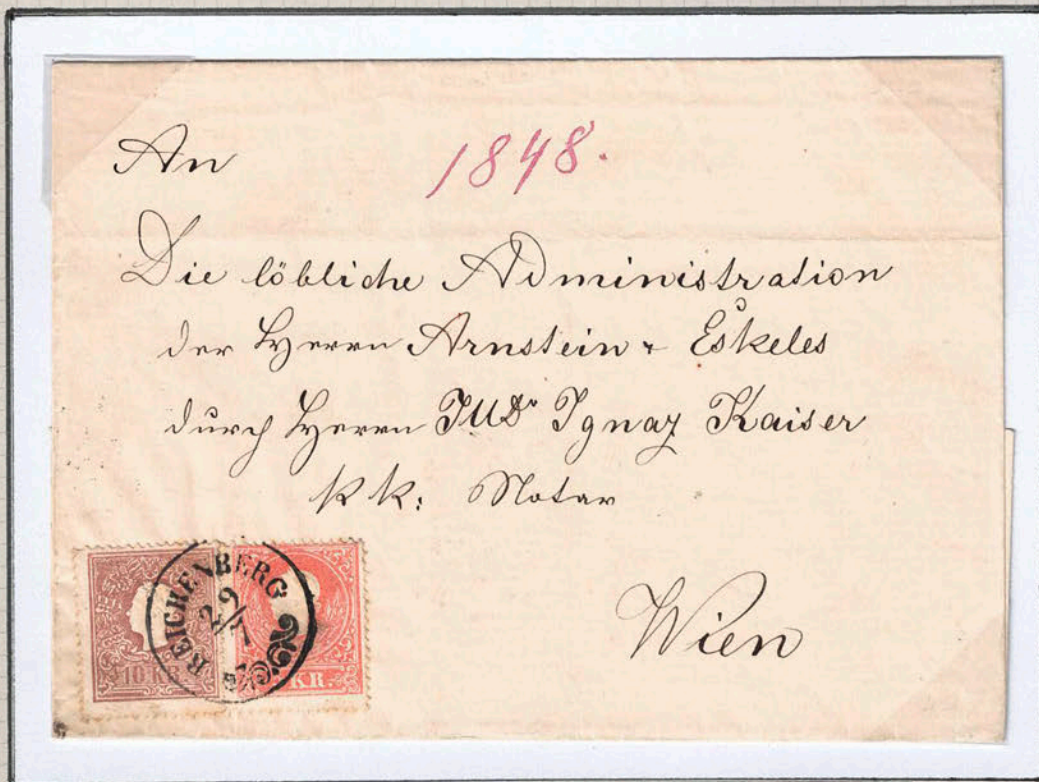 An 1848.
Die löbliche Administration
der Herrn Arnstein & Eskeles
durch Herrn JUDr Ignaz Kaiser
kk: Notar
Wien
REICHENBERG
29/7
10 KR.
KR.